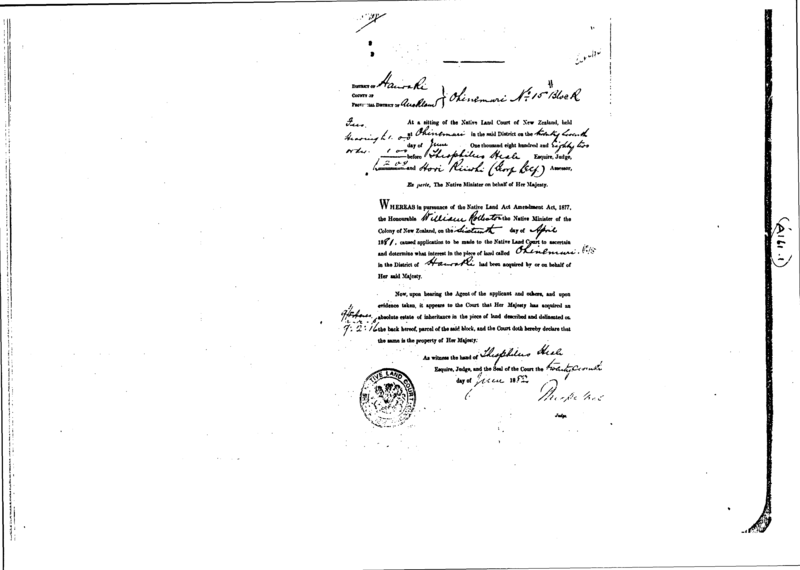 DISTRICT OF Hauraki
COUNTY OF
PROVINCIAL DISTRICT OF Auckland } Ohinemuri No. 15 Block
At a sitting of the Native Land Court of New Zealand, held
at Ohinemuri in the said District on the twenty seventh
day of June One thousand eight hundred and eighty two
before Theophilus Heale Esquire, Judge,
and Hori Assessor,
Fees
Hearing 1. 0 0
order 1 0 0
Ex parte, The Native Minister on behalf of Her Majesty.
WHEREAS in pursuance of the Native Land Act Amendment Act, 1877,
the Honourable William Rolleston the Native Minister of the
Colony of New Zealand, on the sixteenth day of April
1881, caused application to be made to the Native Land Court to ascertain
and determine what interest in the piece of land called Ohinemuri No. 15
in the District of Hauraki had been acquired by or on behalf of
Her said Majesty.
Now, upon hearing the Agent of the applicant and others, and upon
evidence taken, it appears to the Court that Her Majesty has acquired an
absolute estate of inheritance in the piece of land described and delineated on
the back hereof, parcel of the said block, and the Court doth hereby declare that
the same is the property of Her Majesty.
9. 2. 16
As witness the hand of Theophilus Heale
Esquire, Judge, and the Seal of the Court the twenty seventh
day of June 1882
Judge.
NATIVE LAND COURT
A161.1